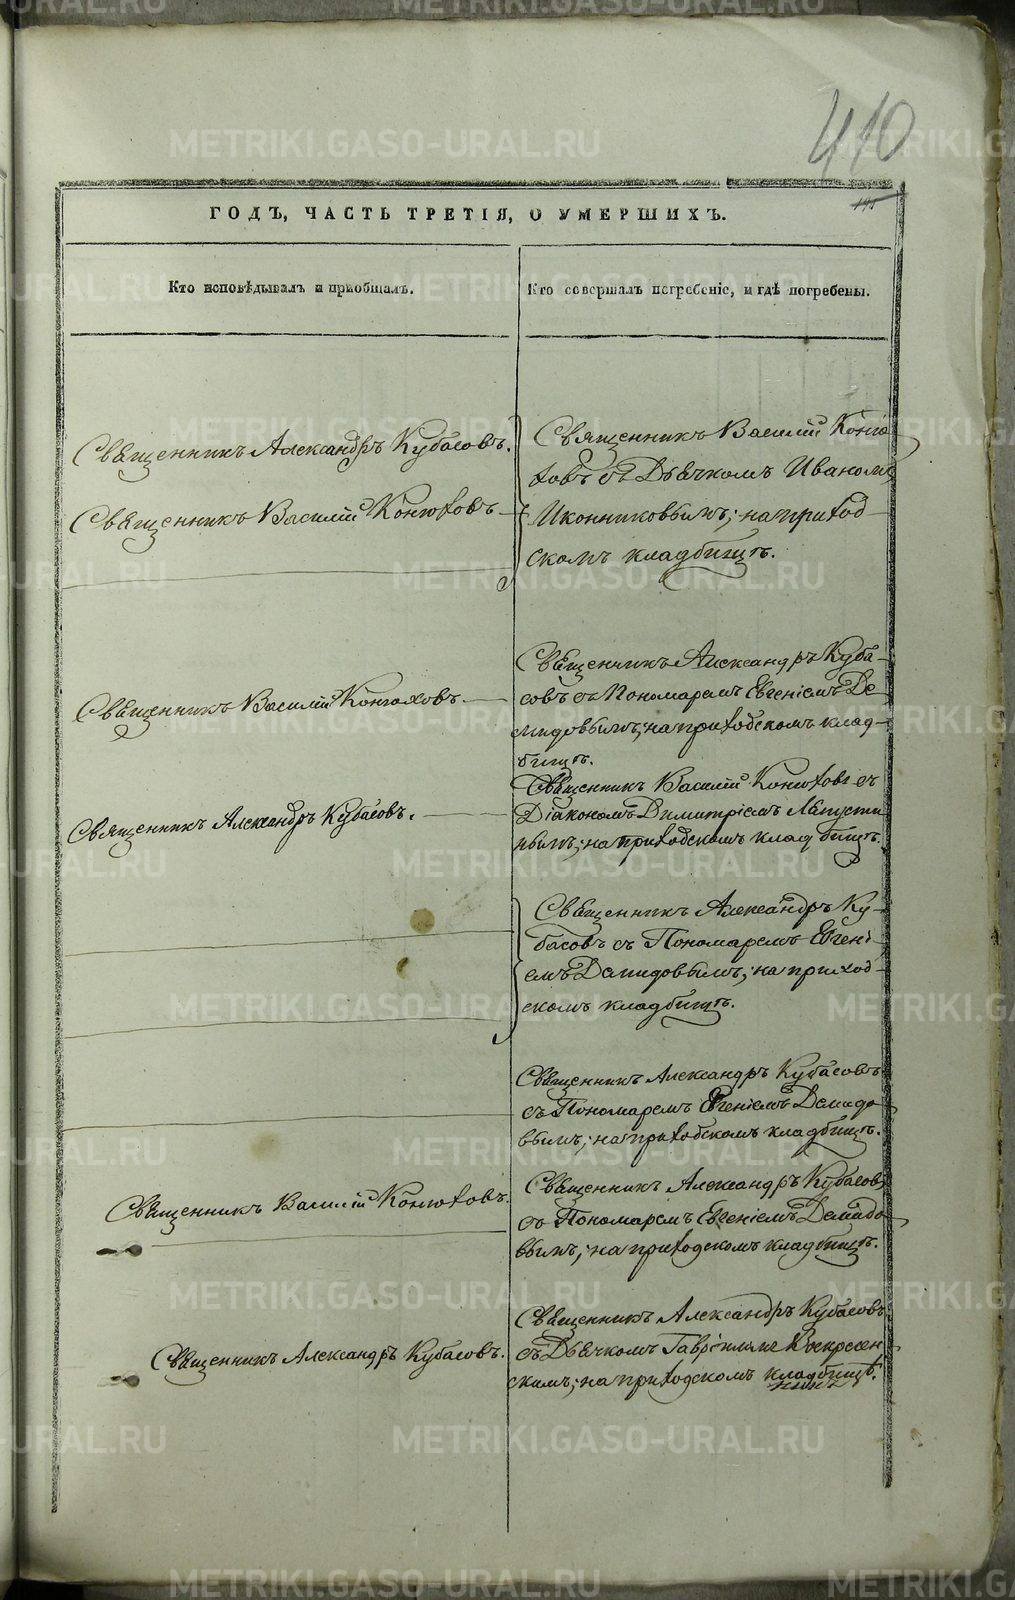 410
ГОДЪ, ЧАСТЬ ТРЕТІЯ, О УМЕРШИХЪ.
Кто исповѣдывалъ и пріобщалъ.
Кто совершалъ погребеніе, и гдѣ погребены.
Священникъ Александръ Кубасовъ.
Священникъ Василій Конюховъ
Священникъ Василій Коню
ховъ съ Дьячкомъ Иваномъ
Иконниковымъ; на приход
скомъ кладбищѣ.
Священникъ Василій Конюховъ.
Священникъ Александръ Куба-
совъ съ Пономаремъ Евгеніемъ Де-
мидовымъ; на приходскомъ клад-
бищѣ.
Священникъ Александръ Кубасовъ.
Священникъ Василій Конюховъ съ
Діакономъ Димитріемъ Лапусти
нымъ; на приходскомъ кладбищѣ.
Священникъ Александръ Ку-
басовъ съ Пономаремъ Евгені-
емъ Демидовымъ; на приход-
скомъ кладбищѣ.
Священникъ Александръ Кубасовъ
съ Пономаремъ Евгеніемъ Демидо-
вымъ; на приходскомъ кладбищѣ.
Священникъ Василій Конюховъ.
Священникъ Александръ Кубасовъ
съ Пономаремъ Евгеніемъ Демидо-
вымъ; на приходскомъ кладбищѣ.
Священникъ Александръ Кубасовъ.
Священникъ Александръ Кубасовъ
съ Дьячкомъ Гавріиломъ Воскресен
скимъ; на приходскомъ кладбищѣ.
METRIKI.GASO-URAL.RU